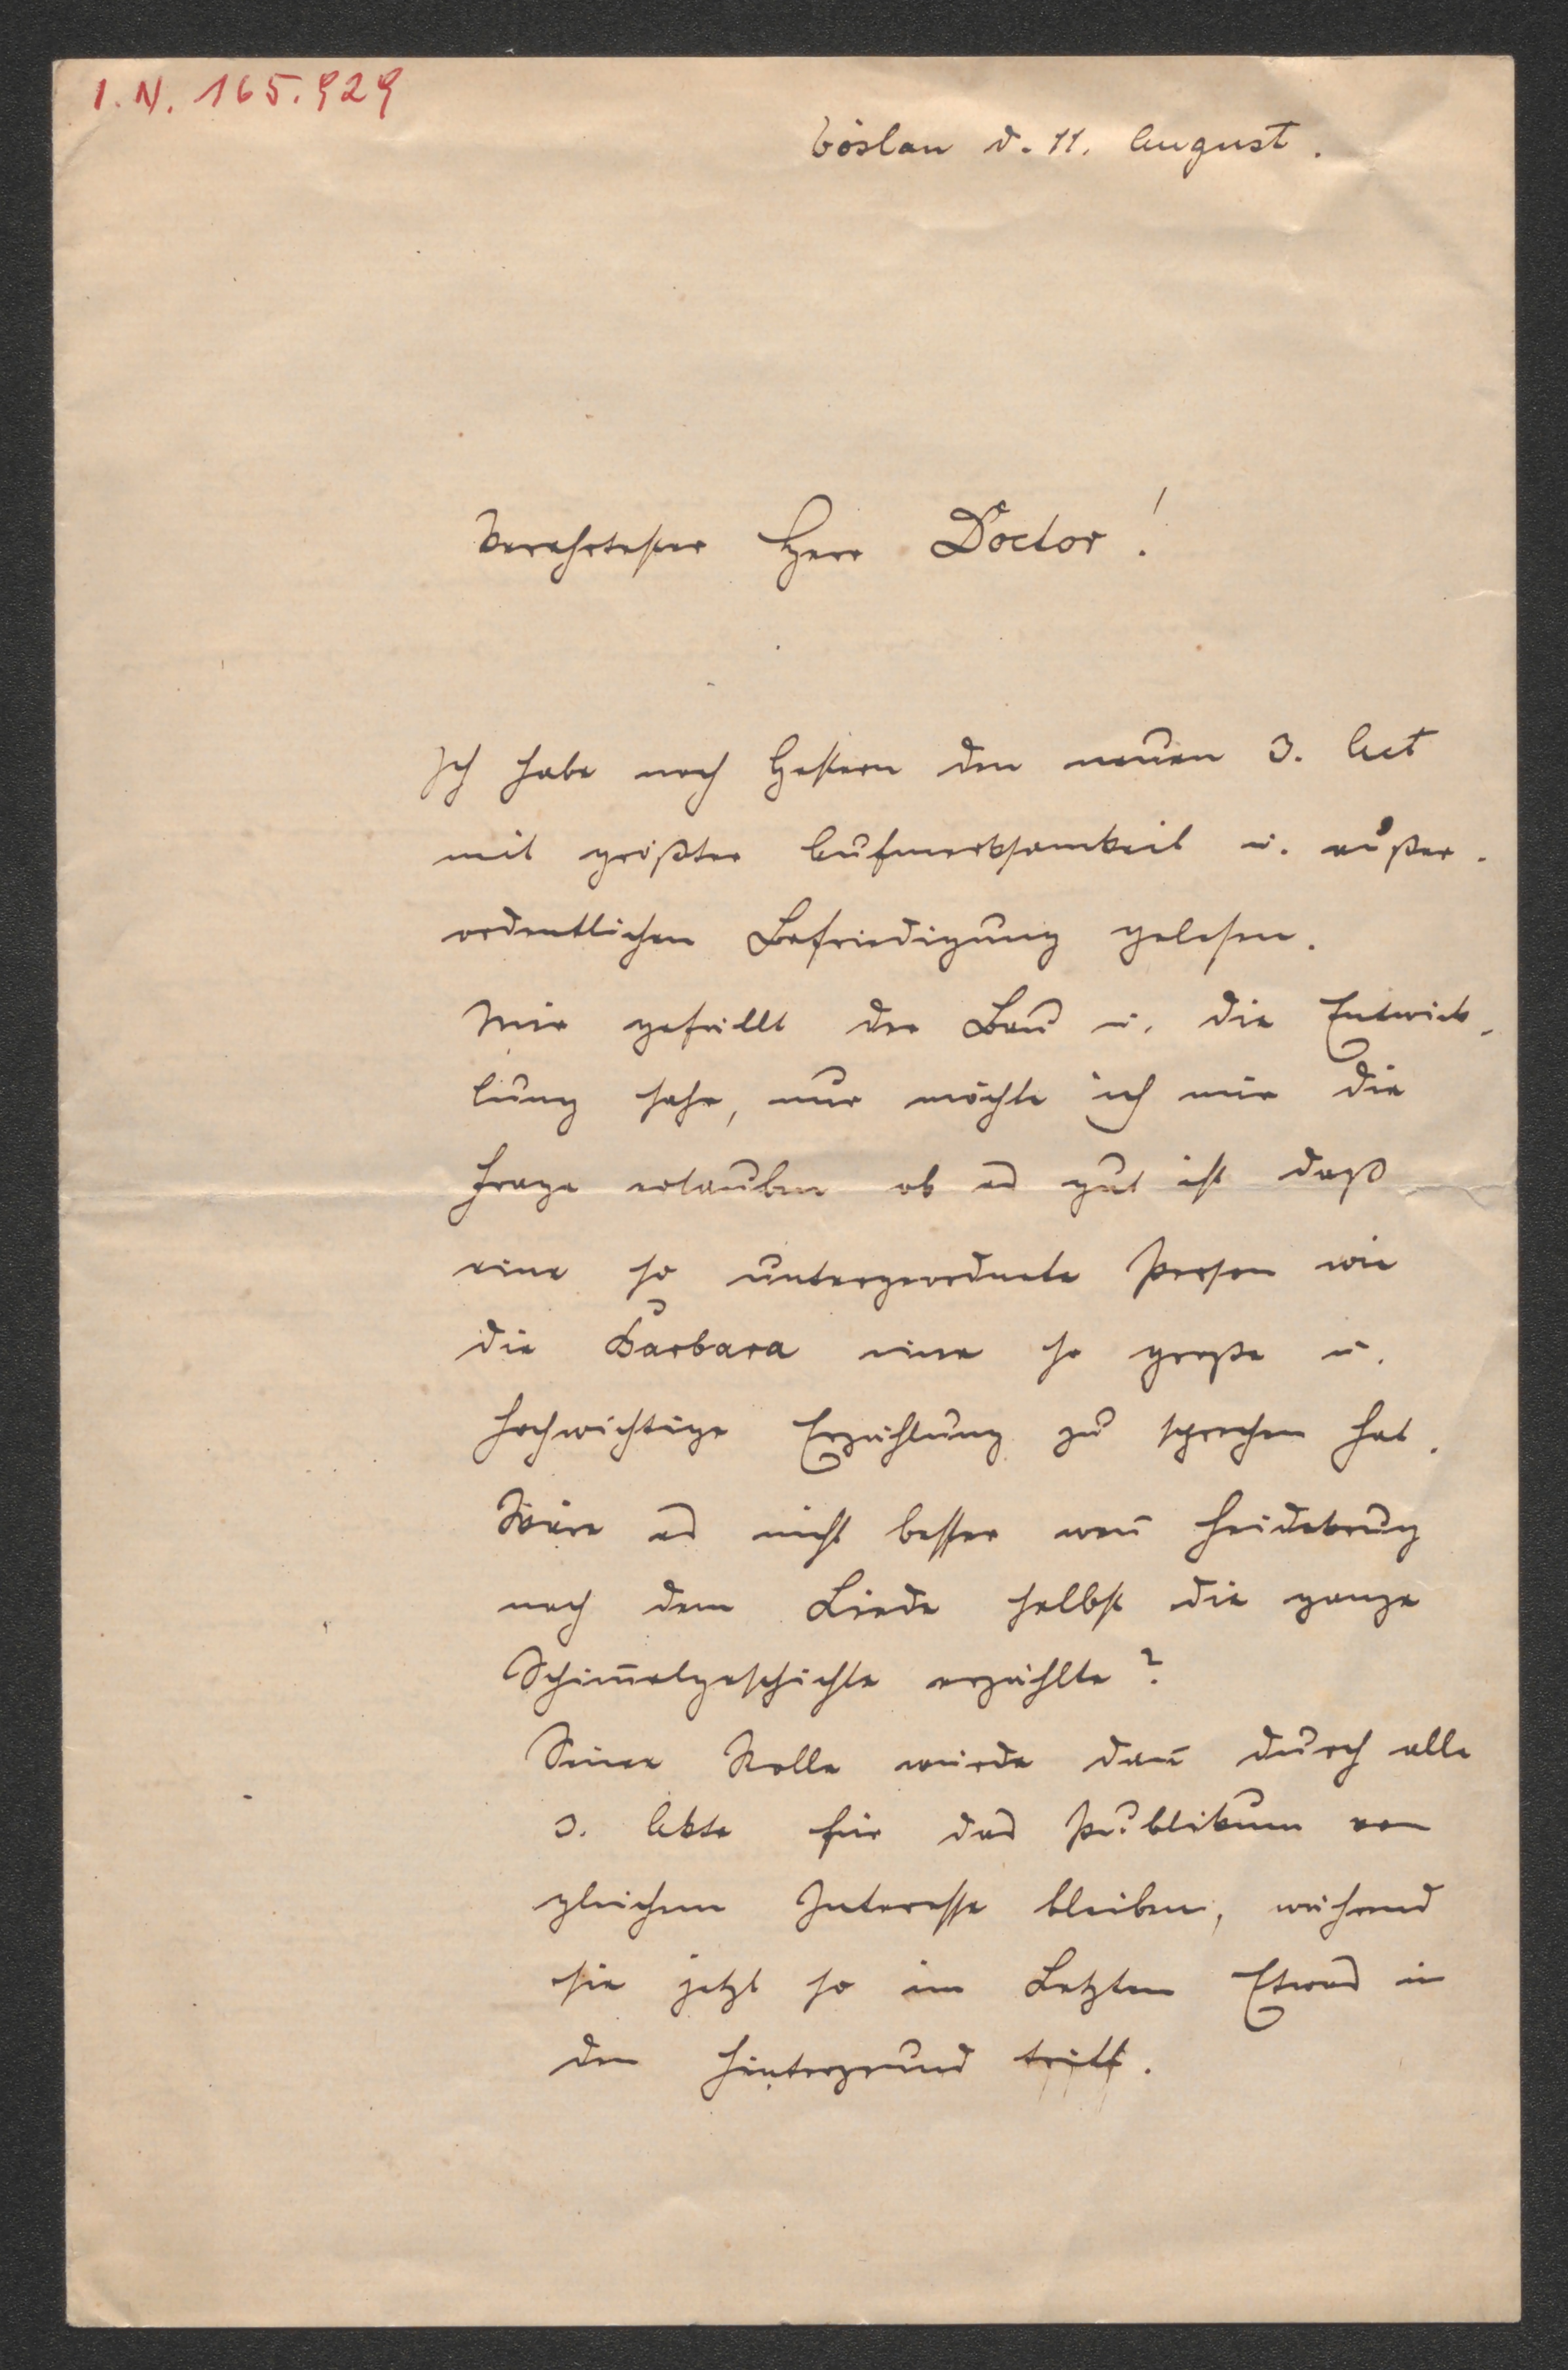 I. N. 165.929
Vöslau d. 11. August.
Verehrtester Herr Doctor!
Ich habe noch Gestern den neuen 3. Act
mit größter Aufmerksamkeit u. außer-
ordentlichen Befriedigung gelesen.
Mir gefällt der Bau u. die Entwick-
lung sehr, nur möchte ich mir die
Frage erlauben ob es gut ist daß
eine so untergeordnete Person wie
die Barbara eine so große u.
hochwichtige Erzählung zu sprechen hat.
Wäre es nicht besser weñ Heidekrug
nach dem Liede selbst die ganze
Schim̃elgeschichte erzählte?
Seine Rolle würde dañ durch alle
3. Akte für das Publikum von
gleichem Interesse bleiben, während
sie jetzt so im Letzten Etwas in
den Hintergrund tritt.